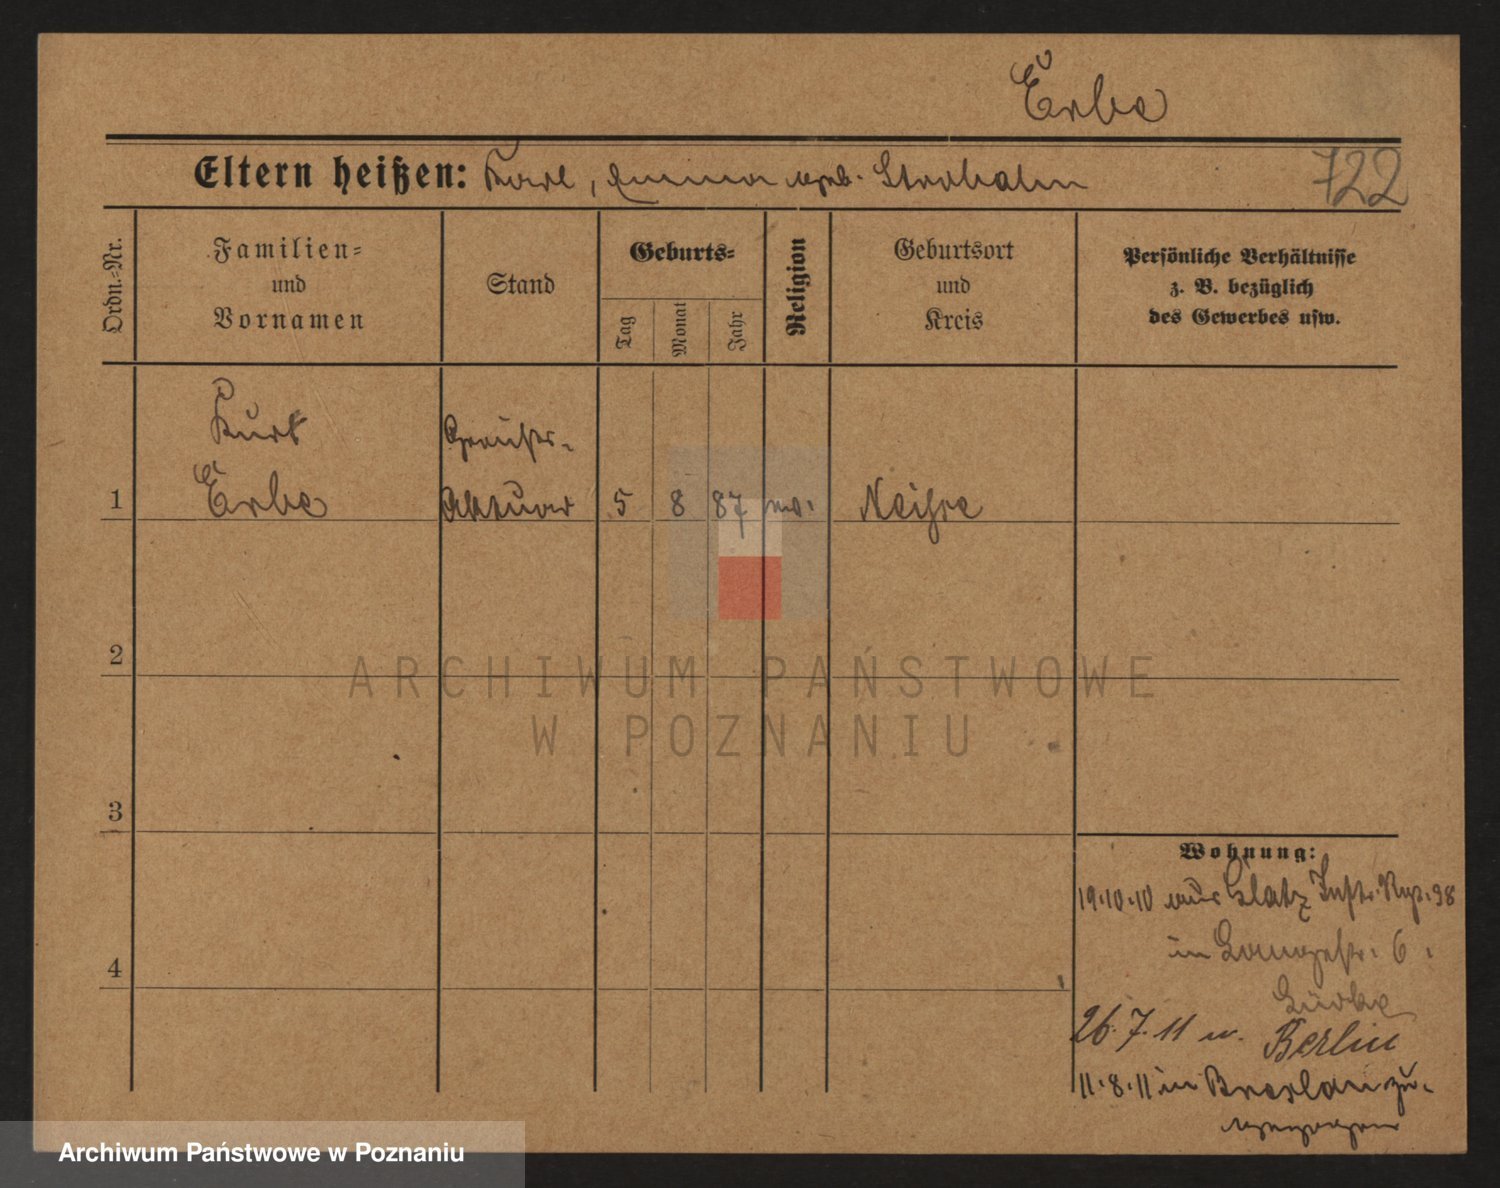 Erbe
Eltern heißen: Karl, Emma geb. Strohalm
722
Ordn.-Nr.
Familien-
und
Vornamen
Stand
Geburts-
Tag
Monat
Jahr
Religion
Geburtsort
und
Kreis
Persönliche Verhältnisse
z. B. bezüglich
des Gewerbes usw.
Kurt
1 Erbe Aktuar 5 8 87 Neisse
2
3
4
Wohnung:
19.10.10 aus Glatz Inftr. Rgt. 38
in Langestr. 6.
26.7.11 n. Berlin
11.8.11 in Breslau zu-
gezogen
ARCHIWUM PAŃSTWOWE
W POZNANIU
Archiwum Państwowe w Poznaniu